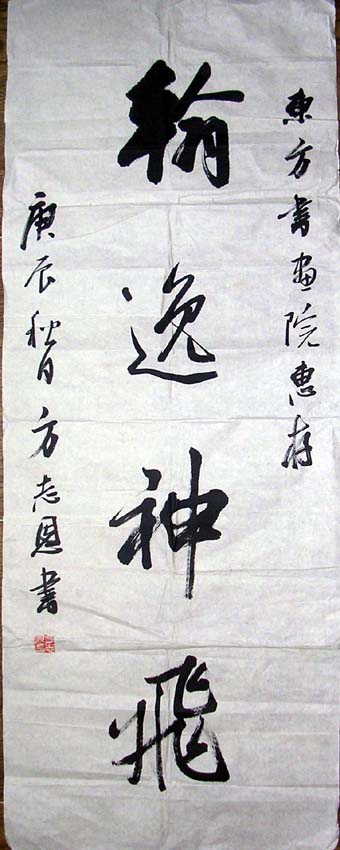 東方書畫院惠存
翰逸神飛
庚辰秋月方志恩書